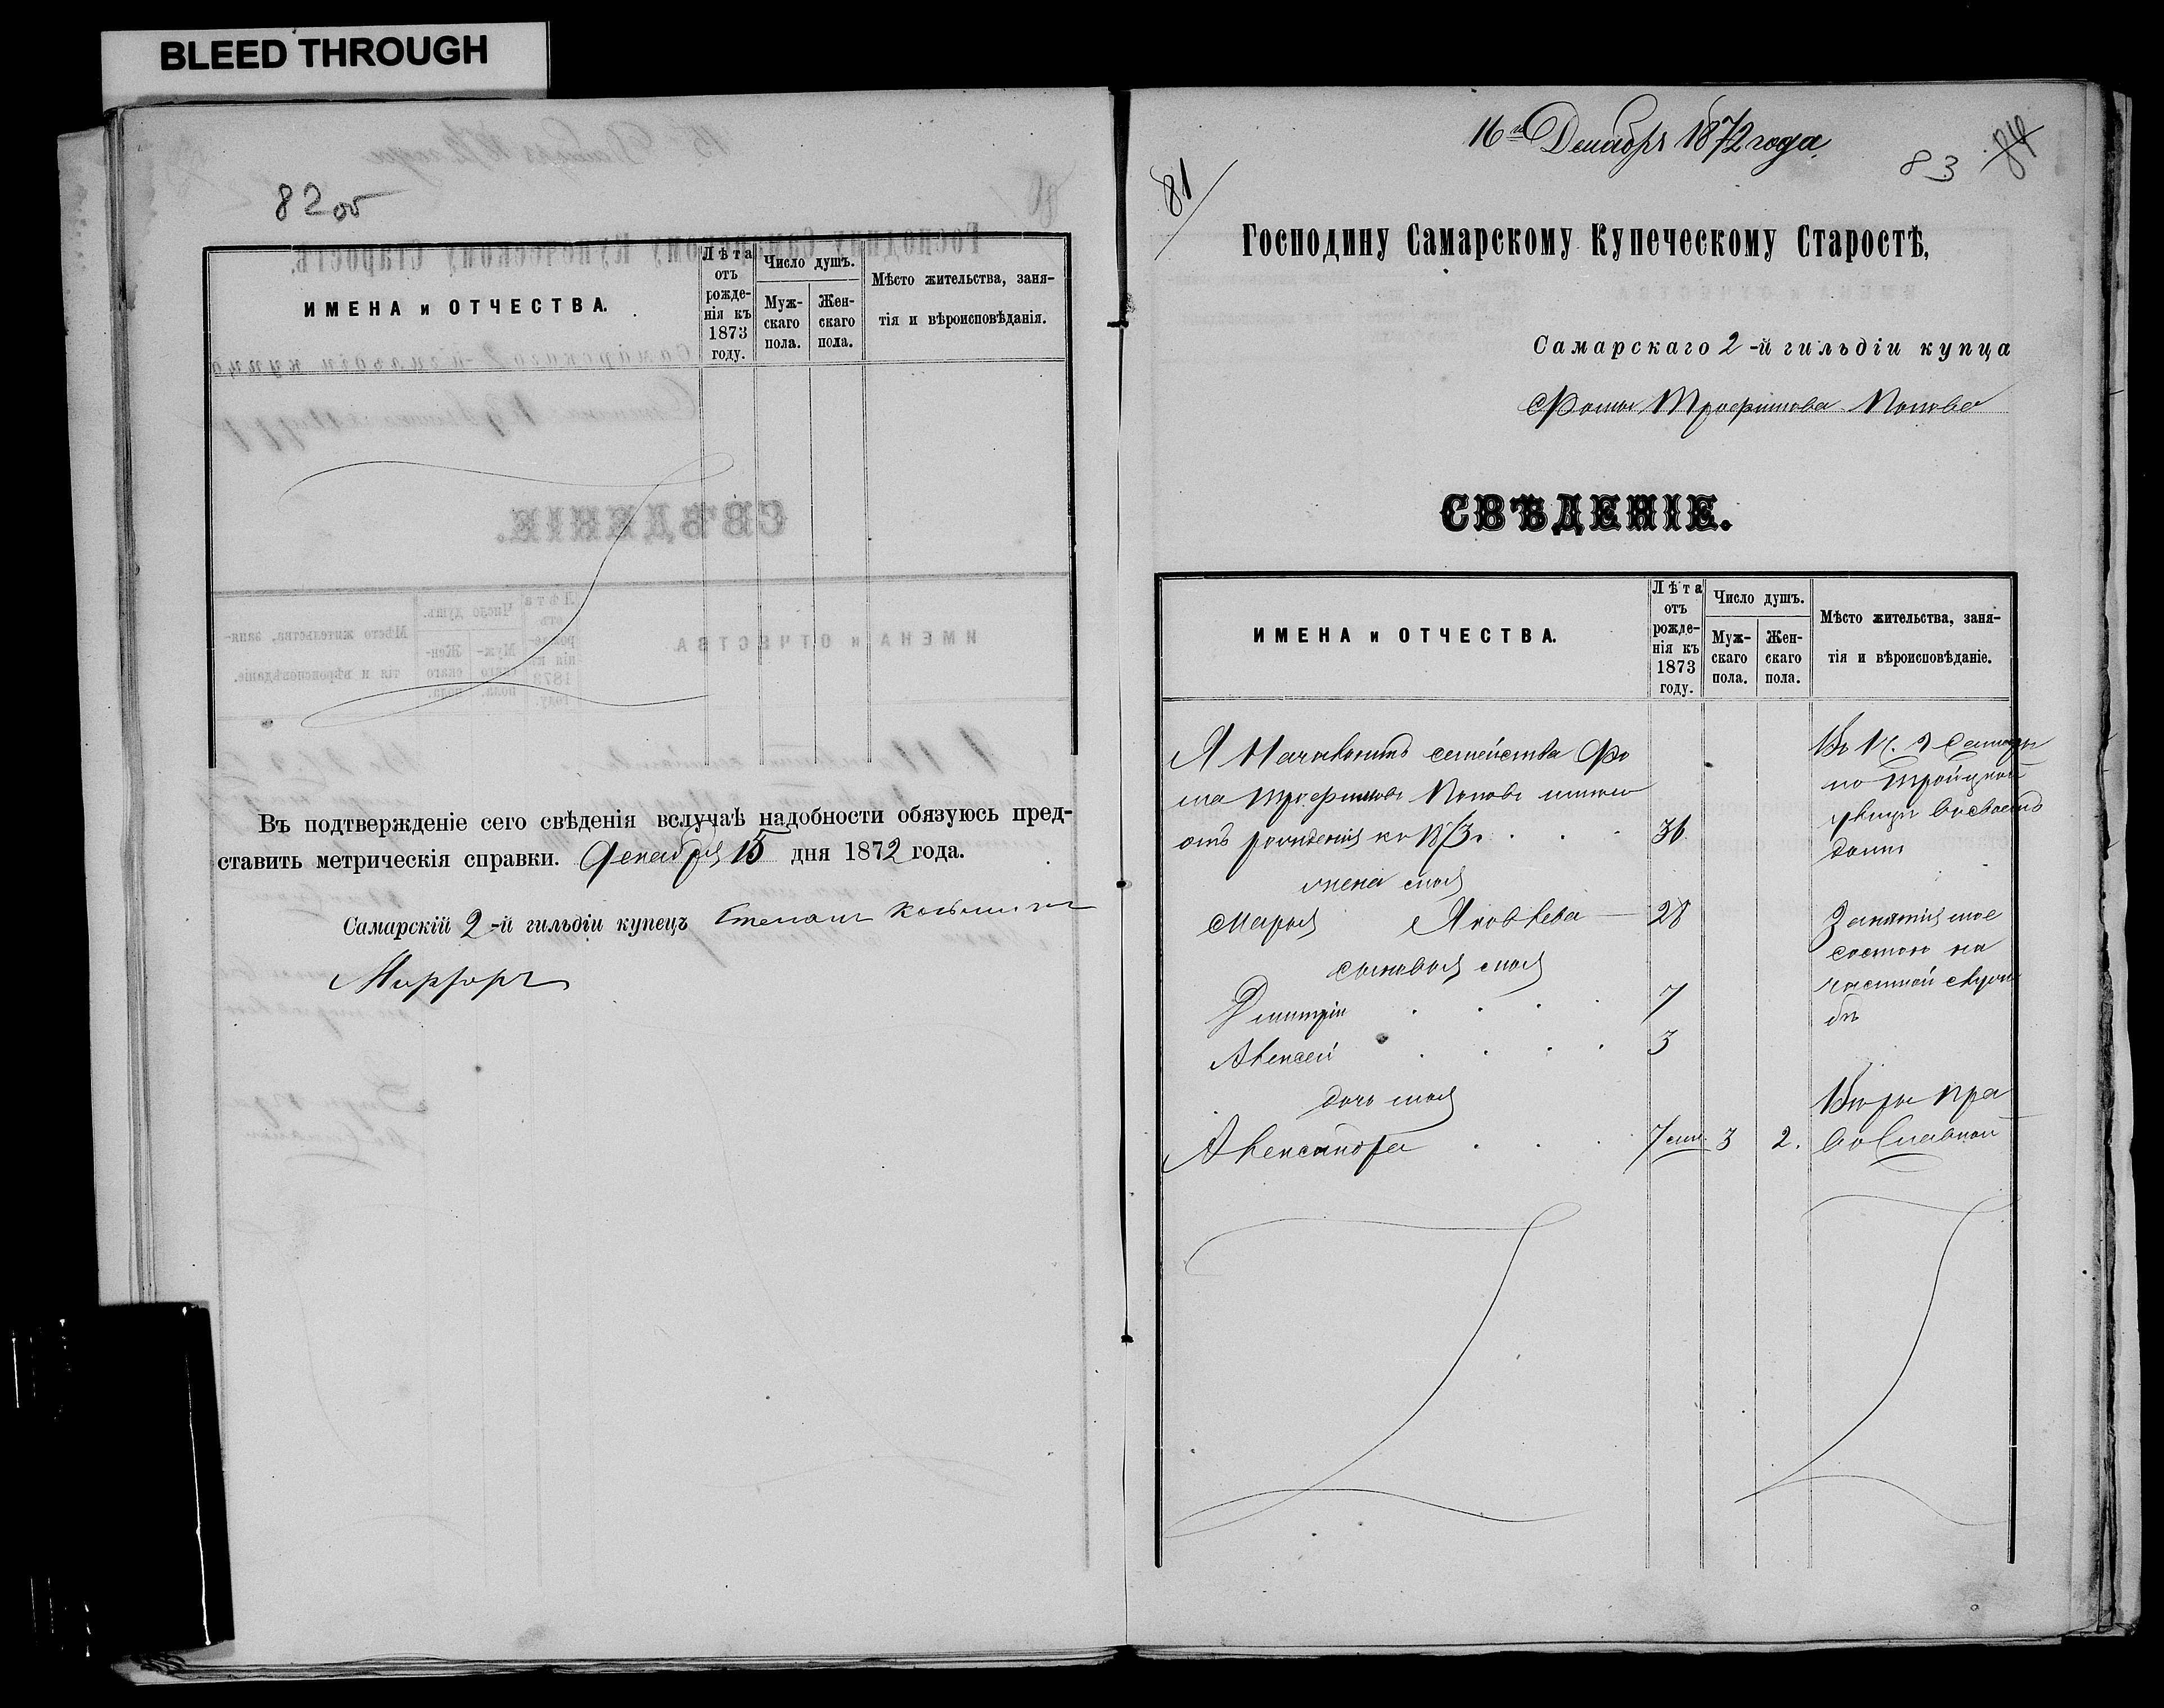 BLEED THROUGH
82 об
ИМЕНА и ОТЧЕСТВА.
Лѣта отъ рожденія къ 1873 году.
Число душъ.
Мужскаго пола.
Женскаго пола.
Мѣсто жительства, заня-
тія и вѣроисповѣданія.
Въ подтвержденіе сего свѣденія вслучаѣ надобности обязуюсь пред-
ставить метрическія справки. Декабря 15 дня 1872 года.
Самарскій 2-й гильдіи купецъ Степанъ
16го Декабря 1872 года
81
83
84
Господину Самарскому Купеческому Старостѣ,
Самарскаго 2-й гильдіи купца
Фомы Трофимова Попова
СВѢДЕНІЕ.
ИМЕНА и ОТЧЕСТВА.
Лѣта отъ рожденія къ 1873 году.
Число душъ.
Мужскаго пола.
Женскаго пола.
Мѣсто жительства, заня-
тія и вѣроисповѣданіе.
Я Начальникъ семейства Фо
ма Трофимовъ Поповъ имѣю
отъ рожденія къ 1873 г. 36
жена моя
Марья Яковлева 28
сыновья моя
Дмитрій 7
Алексей 3
дочь моя
Александра 7 мѣс 3 2.
Въ г. Самарѣ
по Троицкой
улицѣ въ своемъ
домѣ
Занятія мое
состою на
частной служ
бѣ
Вѣры пра
вославной